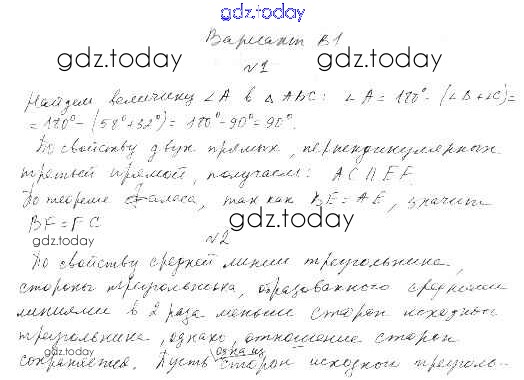 gdz.today
Вариант В1
gdz.today gdz.today
№1
Найдем величину ∠A в △ABC: ∠A = 180° - (∠B + ∠C) =
= 180° - (58° + 32°) = 180° - 90° = 90°.
По свойству двух прямых, перпендикулярных
третьей прямой, получаем: AC || EF.
По теореме Фалеса, так как BE = AE, значит
BF = FC
gdz.today
gdz.today
№2
По свойству средней линии треугольника,
стороны треугольника, образованного средними
линиями в 2 раза меньше сторон исходного
треугольника, однако, отношение сторон
сохраняется. Пусть одна из сторон исходного треуголь-
gdz.today